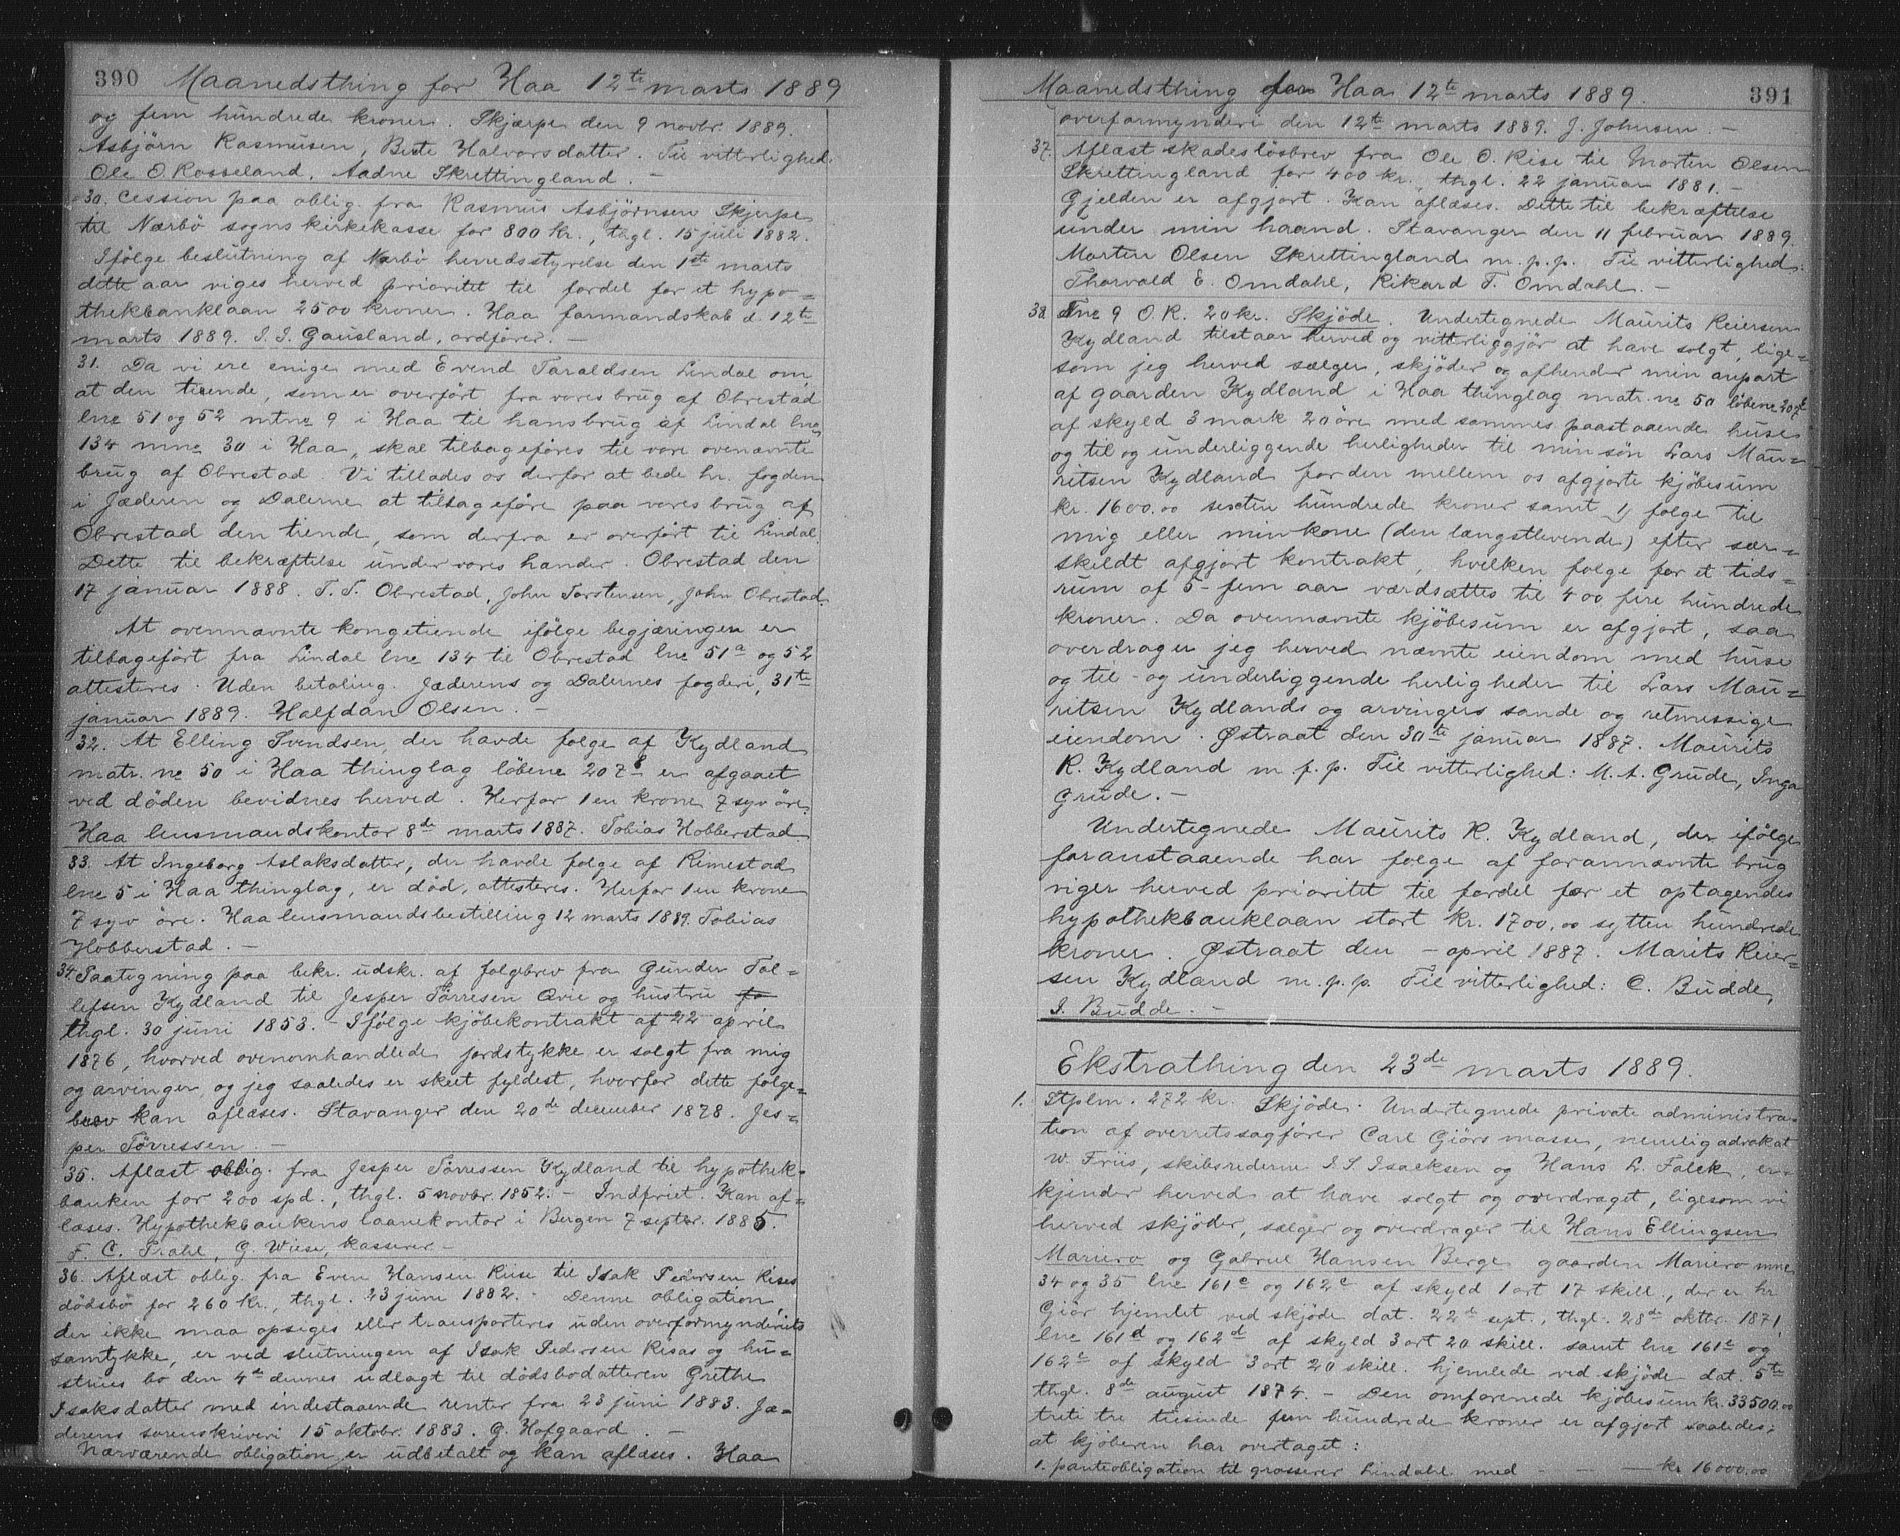 390 Maanedsthing for Haa 12te marts 1889
og fem hundrede kroner. Skjærpe den 9 novbr. 1889.
Asbjörn Rasmusen, Berte Halvorsdatter. Til vitterlighed:
Ole O. Rosseland, Aadne Skrettingland. -
30. Cession paa oblig. fra Rasmus Asbjørnsen Skjerpe
til Nærbö sogns kirkekasse for 800 kr., thgl. 15 juli 1882.
Ifölge beslutning af Nærbö herredsstyrelse den 1ste marts
dette aar viges herved prioritet til fordel for et hypo=
thekbanklaan 2500 kroner. Haa formandskab d. 12te
marts 1889. I. I. Gausland, ordförer. -
31. Da vi ere enige med Evend Taraldsen Lindal om,
at den tiende, som er overfört fra vores brug af Obrestad
lne 51 og 52 mtne 9 i Haa til hans brug af Lindal lne
134 mne 30 i Haa, skal tilbageföres til vore ovennævnte
brug af Obrestad. Vi tillades os derfor at bede hr. fogden
i Jæderen og Dalerne at tilbageföre paa vores brug af
Obrestad den tiende, som derfra er overfört til Lindal.
Dette til bekræftelse under vores hænder. Obrestad den
17 januar 1888. T. T. Obrestad, John Torstensen, John Obrestad.
At ovennævnte kongetiende ifölge begjæringen er
tilbagefört fra Lindal lne 134 til Obrestad lne 51a og 52
attesteres. Uden betaling. Jæderens og Dalernes fogderi, 31te
januar 1889. Halfdan Olsen. -
32. At Elling Svendsen, der havde folge af Kydland
matr. ne 50 i Haa thinglag löbene 207b er afgaaet
ved döden bevidnes herved. Herfor 1 en krone 7 syv öre.
Haa lensmandskontor 8de marts 1887. Tobias Hobberstad.
33. At Ingeborg Aslaksdatter, der havde folge af Rimestad
lne 5 i Haa thinglag, er död, attesteres. Herfor 1 en krone
7 syv öre. Haa lensmandsbestilling 12 marts 1889. Tobias
Hobberstad. -
34. Paategning paa bekr. udskr. af folgebrev fra Gunder Tol=
lefsen Kydland til Jesper Törresen Qvie og hustru
thgl. 30 juni 1853. - Ifölge kjöbekontrakt af 22 april
1876, hvorved ovenomhandlede jordstykke er solgt fra mig
og arvinger, og jeg saaledes er skeet fyldest, hvorfor dette folge=
brev kan aflæses. Stavanger den 20de december 1878. Jes=
per Törressen. -
35. Aflæst oblig. fra Jesper Törressen Kydland til hypothek=
banken for 200 spd., thgl. 5 novbr. 1852. - Indfriet. Kan af=
læses. Hypothekbankens laanekontor i Bergen 7 septbr. 1885.
F. C. Prahl, G. Wiese, kasserer -
36. Aflæst oblig. fra Even Hansen Riise til Isak Pedersen Rises
dödsbö for 260 kr., thgl. 23 juni 1882. - Denne obligation,
der ikke maa opsiges eller transporteres uden overformynderiets
samtykke, er ved slutningen af Isak Pedersen Risas og hu=
strues bo den 4de dennes udlagt til dödsbodatteren Grethe
Isaksdatter med indestaaende renter fra 23 juni 1883. Jæ=
derens sorenskriveri 15 oktobr. 1883. G. Hofgaard. -
Nærværende obligation er udbetalt og kan aflæses. Haa
Maanedsthing for Haa 12te marts 1889. 391
overformynderi den 12te marts 1889. J. Johnsen. -
37. Aflæst skadeslösbrev fra Ole O. Rise til Morten Olsen
Skrettingland for 400 kr., thgl. 22 januar 1881. -
Gjelden er afgjort. Kan aflæses. Dette til bekræftelse
under min haand. Stavanger den 11 februar 1889.
Morten Olsen Skrettingland m.p.p. Til vitterlighed:
Thorvald E. Omdahl, Rikard T. Omdahl. -
38. Tne 9 O.R. 20 kr. Skjöde. Undertegnede Maurits Reiersen
Kydland tilstaar herved og vitterliggjör at have solgt, lige=
som jeg herved sælger, skjöder og afhender min anpart
af gaarden Kydland i Haa thinglag matr. ne 50 löbene 207b
af skyld 3 mark 20 öre med sammes paastaaende huse
og til og underliggende herligheder til min sön Lars Mau=
ritsen Kydland for den mellem os afgjorte kjöbesum
kr. 1600.00 sexten hundrede kroner samt folge til
mig eller min kone (den længstlevende) efter sær=
skildt afgjort kontrakt, hvilken folge for et tids=
rum af 5 - fem aar værdsættes til 400 fire hundrede
kroner. Da ovennævnte kjöbesum er afgjort, saa
overdrager jeg herved nævnte eiendom med huse
og til- og underliggende herligheder til Lars Mau=
ritsen Kydlands og arvingers sande og retmessige
eiendom. Østraat den 30te januar 1887. Maurits
R. Kydland m.f.p. Til vitterlighed: M. A. Grude, Inga
Grude. -
Undertegnede Maurits R. Kydland, der ifölge
foranstaaende har folge af forannævnte brug
viger herved prioritet til fordel for et optagendes
hypothekbanklaan stort kr. 1700.00 sytten hundrede
kroner. Østraat den - april 1887. Marits Reier=
sen Kydland m.p.p. Til vitterlighed: C. Budde,
I. Budde. -
Ekstrathing den 23de marts 1889.
1. Stplm. 272 kr. Skjöde. Undertegnede private administra=
tion af overretssagförer Carl Giörs masse, nemlig advokat
W. Friis, skibsrederne I. S. Isachsen og Hans L. Falck, er=
kjender herved at have solgt og overdraget, ligesom vi
herved skjöder, sælger og overdrager til Hans Ellingsen
Mariero og Gabriel Hansen Berge gaarden Mariero mne
34 og 35 lne 161c og 162c af skyld 1 ort 17 skill., der er hr
Giör hjemlet ved skjöde dat. 22de sept., thgl. 28de oktbr. 1871,
lne 161d og 162d af skyld 3 ort 20 skill. samt lne 161e og
162e af skyld 3 ort 20 skill. hjemlede ved skjöde dat. 5te
thgl. 8de august 1874. - Den omforenede kjöbesum kr. 33500.00
treti tre tusinde fem hundrede kroner er afgjort saaledes,
at kjöberen har overtaget:
1. panteobligation til grosserer Lindahl med - - - kr 16000.00